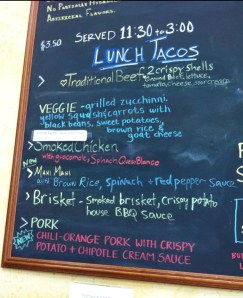 No Particular Hydrogen
Artificial Flavors.
$3.50 SERVED 11:30 to 3:00
LUNCH TACOS
Traditional Beef - 2 crispy shells
ground Beef, lettuce,
tomato, cheese, sour cream
VEGGIE - grilled zucchini,
yellow squash, carrots with
black beans, sweet potatoes,
brown rice &
goat cheese
> Smoked Chicken
with guacamole, Spinach, Queso Blanco
NEW
> Mahi Mahi
with Brown Rice, Spinach + red pepper sauce
> Brisket - smoked brisket, crispy potato
house BBQ sauce
> PORK
NEW CHILI-ORANGE PORK WITH CRISPY
POTATO + CHIPOTLE CREAM SAUCE